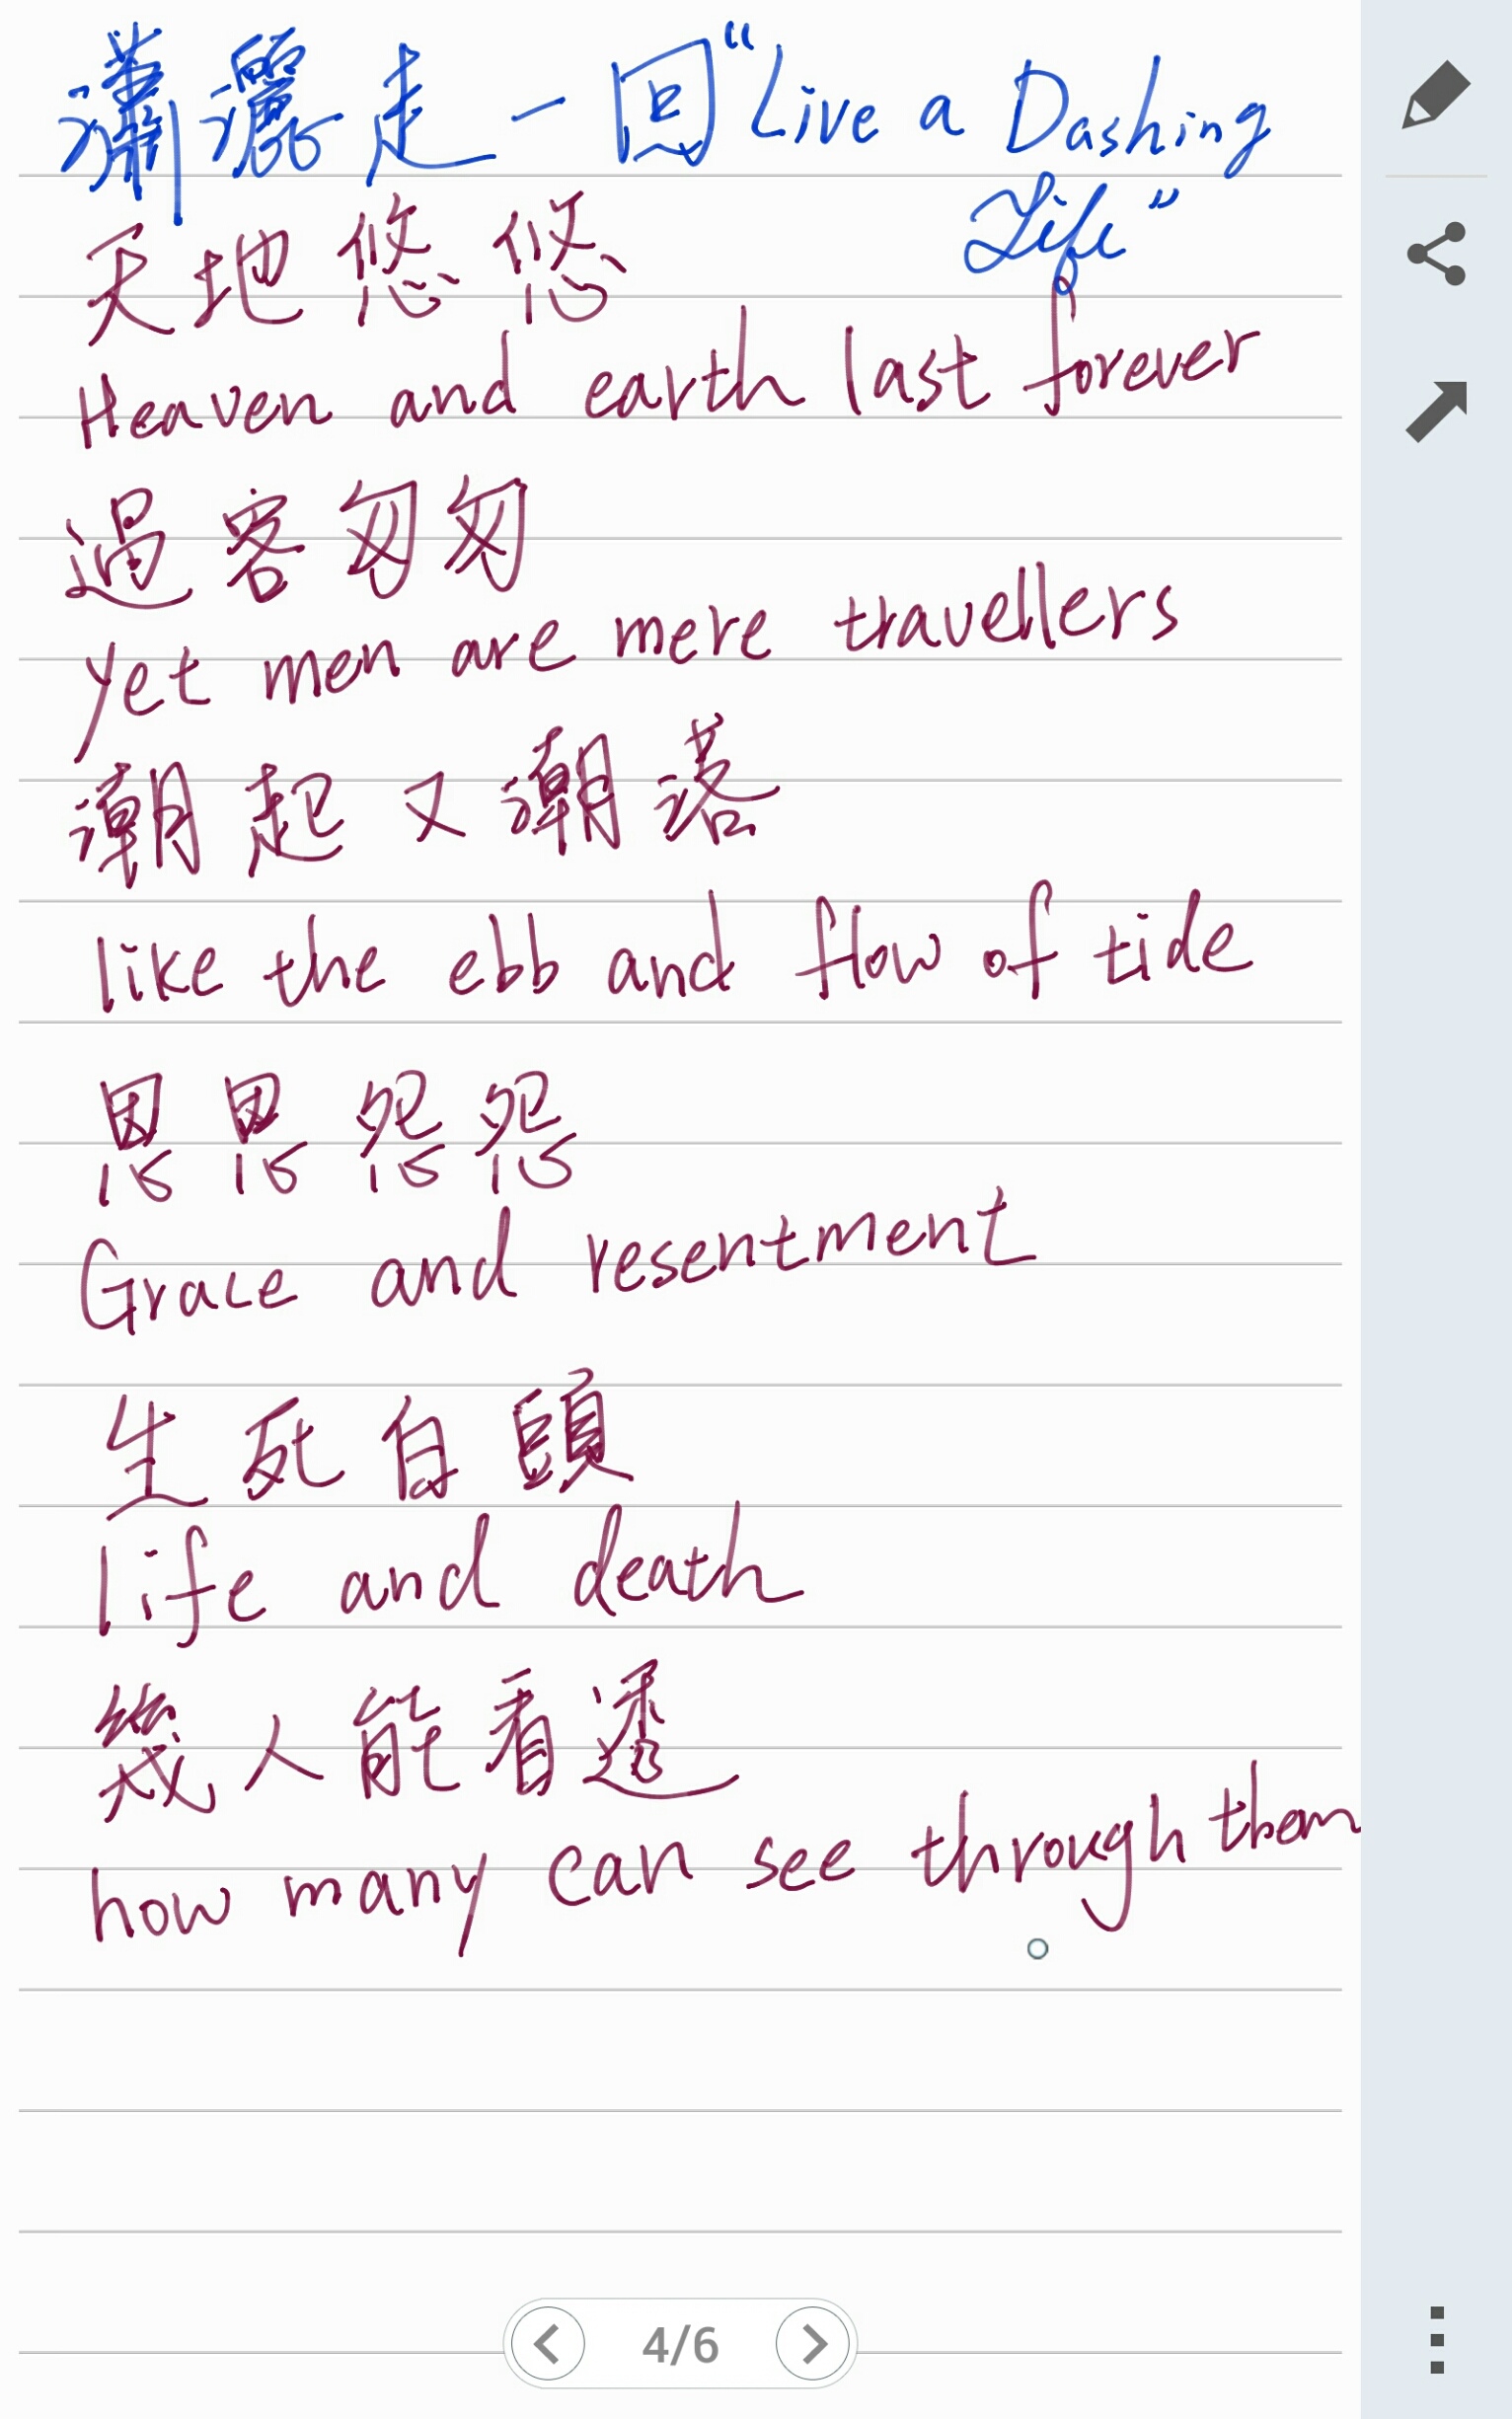 瀟灑走一回 "Live a Dashing
Life"
天地悠悠
Heaven and earth last forever
過客匆匆
yet men are mere travellers
潮起又潮落
like the ebb and flow of tide
恩恩怨怨
Grace and resentment
生死白頭
life and death
幾人能看透
how many can see through them
4/6